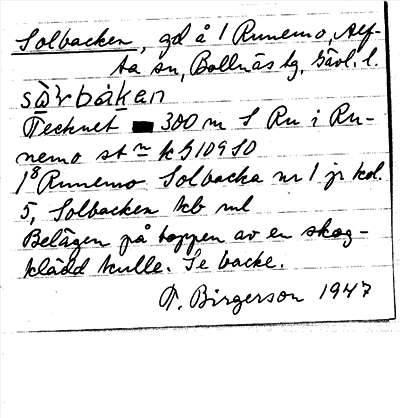 Solbacken, gd å 1 Runemo, Alf-
ta sn, Bollnäs tg, Gävl. l.
sò̱ɫbàkan
Tecknet ■ 300 m S Ru i Ru-
nemo st n k G 109 SO
1⁸ Runemo Solbacka nr 1 jr kd.
5, Solbacken kb ml
Belägen på toppen av en skog-
klädd kulle. Se backe.
F. Birgerson 1947